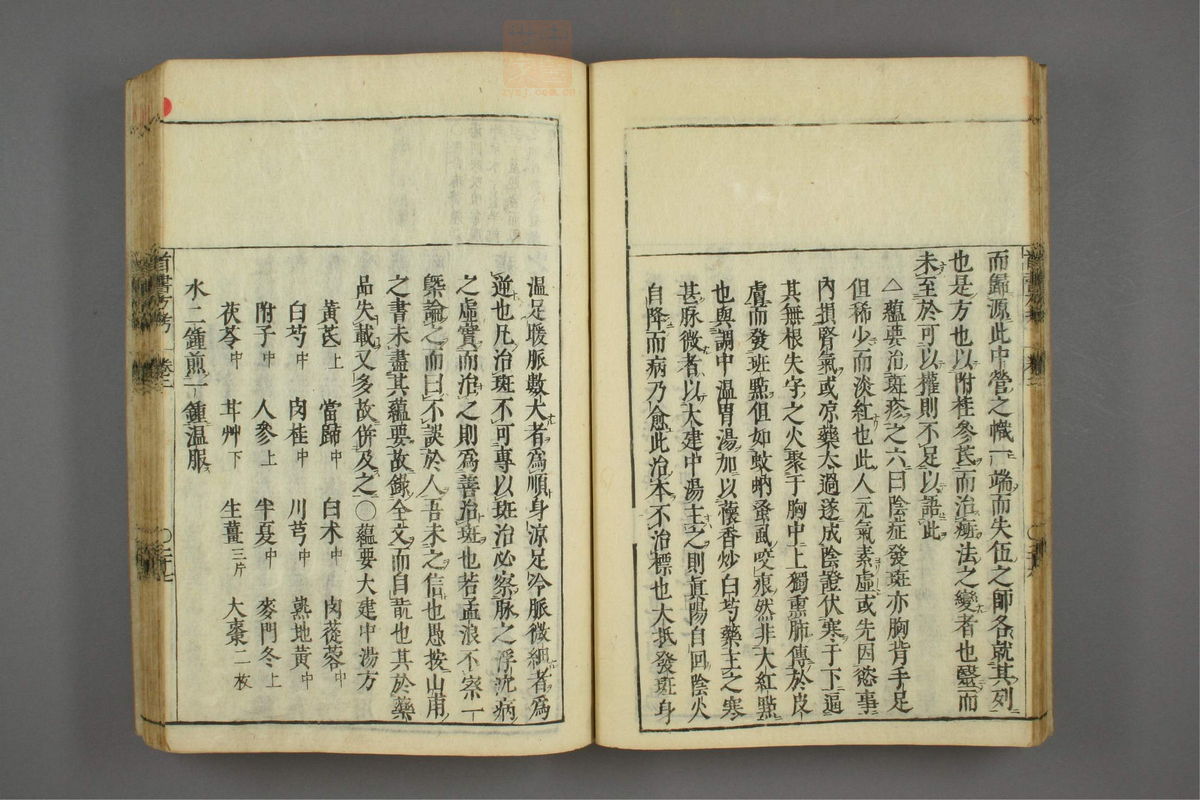 而歸源此中營之幟一端而失伍之師各就其列
也是方也以附桂參芪而治痘法之變者也醫而
未至於可以權則不足以語此
△蘊要治斑疹之六曰陰症發斑亦胸背手足
但稀少而淡紅也此人元氣素虛或先因慾事
內損腎氣或凉藥太過遂成陰證伏寒于下逼
其無根失守之火聚于胸中上獨熏肺傳於皮
膚而發斑點但如蚊蚋蚤虱咬痕然非大紅點
也與調中溫胃湯加以藿香炒白芍藥主之寒
甚脉微者以大建中湯主之則眞陽自回陰火
自降而病乃愈此治本不治標也大抵發斑身
溫足暖脈數大者為順身涼足冷脈微細者為
逆也凡治斑不可專以斑治必察脉之浮沈病
之虛實而治之則為善治斑也若孟浪不察一
槩論之而曰不誤於人吾未之信也愚按山甫
之書未盡其蘊要故錄全文而自翫也其於藥
品失載又多故併及之〇蘊要大建中湯方
黃芪上 當歸中 白术中 肉蓯蓉中
白芍中 肉桂中 川芎中 熟地黃中
附子中 人參上 半夏中 麥門冬上
茯苓中 甘艸下 生薑三片 大棗二枚
水二鍾煎一鍾溫服
首書方考 卷三 〇三十七